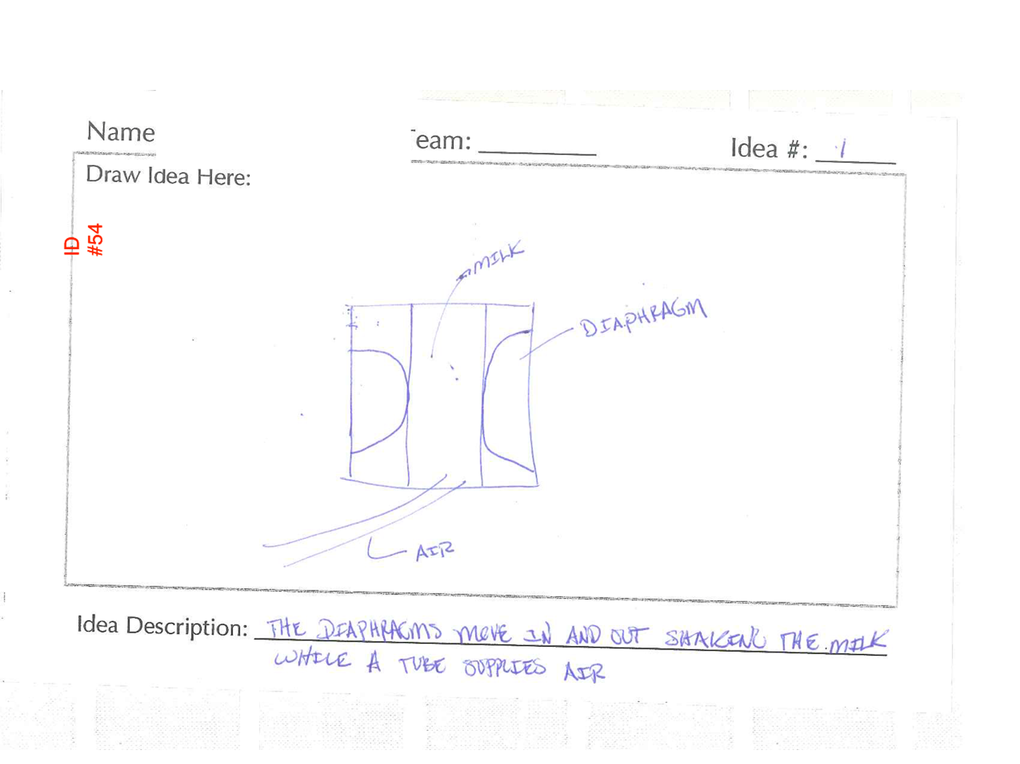 Name
Team:
Idea #: 1
Draw Idea Here:
ID
#54
MILK
DIAPHRAGM
AIR
Idea Description: THE DIAPHRAGMS MOVE IN AND OUT SHAKING THE MILK
WHILE A TUBE SUPPLIES AIR